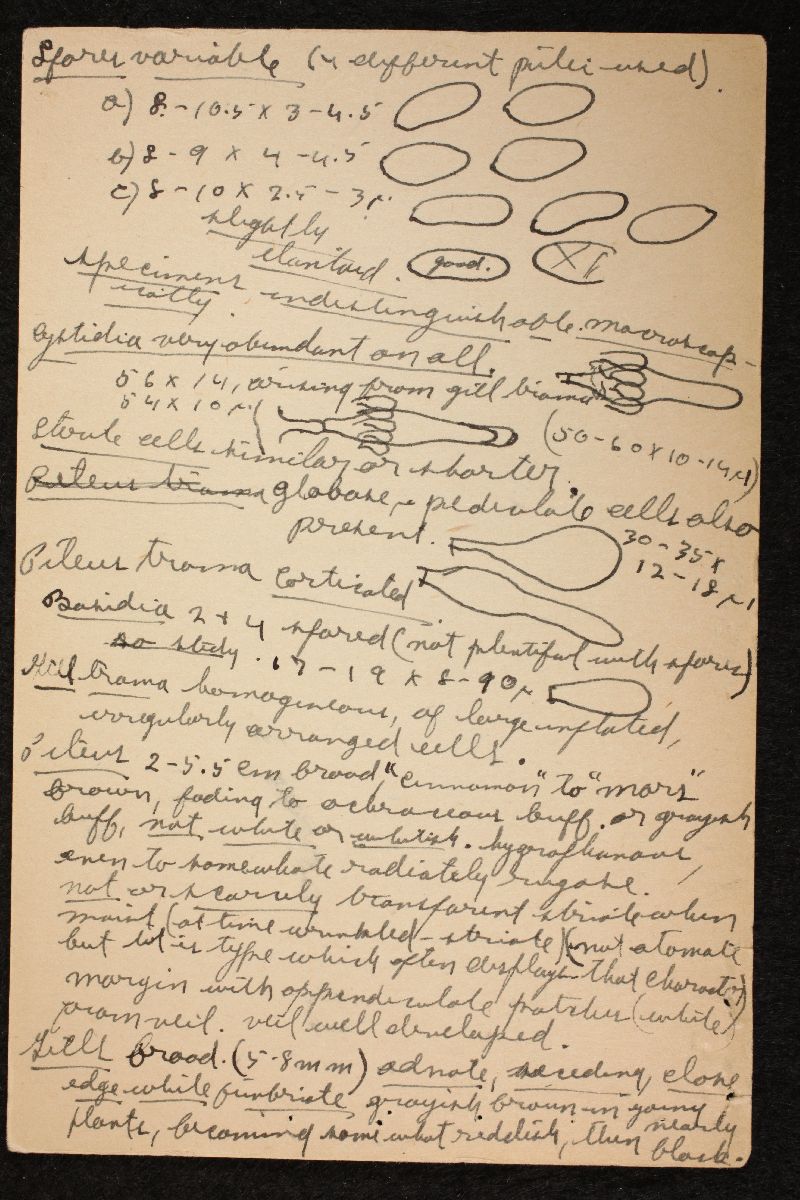 Spores variable (4 different pilei used).
a) 8-10.5 x 3-4.5
b) 8-9 x 4-4.5
c) 8-10 x 2.5-3µ.
slightly
allantoid.
good.
Specimens indistinguishable macroscop-
ically.
Cystidia very abundant on all.
56 x 14, arising from gill trama
54 x 10µ
(50-60 x 10-14µ)
Sterile cells similar or shorter.
Pileus trama globose, pedicellate cells also
present.
30-35 x
12-18µ
Pileus trama corticated.
Basidia 2 + 4 spored (not plentiful with spores)
so study. 17-19 x 8-90µ
Gill trama homogineous, of large inflated,
irregularly arranged cells.
Pileus 2-5.5 cm broad, "cinnamon" to "mars"
brown, fading to ochraceous buff. or grayish
buff, not white or whitish. hygrophanous,
even to somewhat radiately rugose.
not or scarcely transparent striate when
moist (at time wrinkled-striate) (not atomate
but it is type which often displays that character)
margin with appendiculate patches (white)
from veil. veil well developed.
Gills broad. (5-8mm) adnate, seceding, close
edge white fimbriate grayish brown in young
plants, becoming somewhat reddish, then nearly
black.